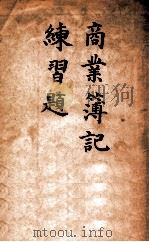 商業簿記
練習題
www.mtoou.info